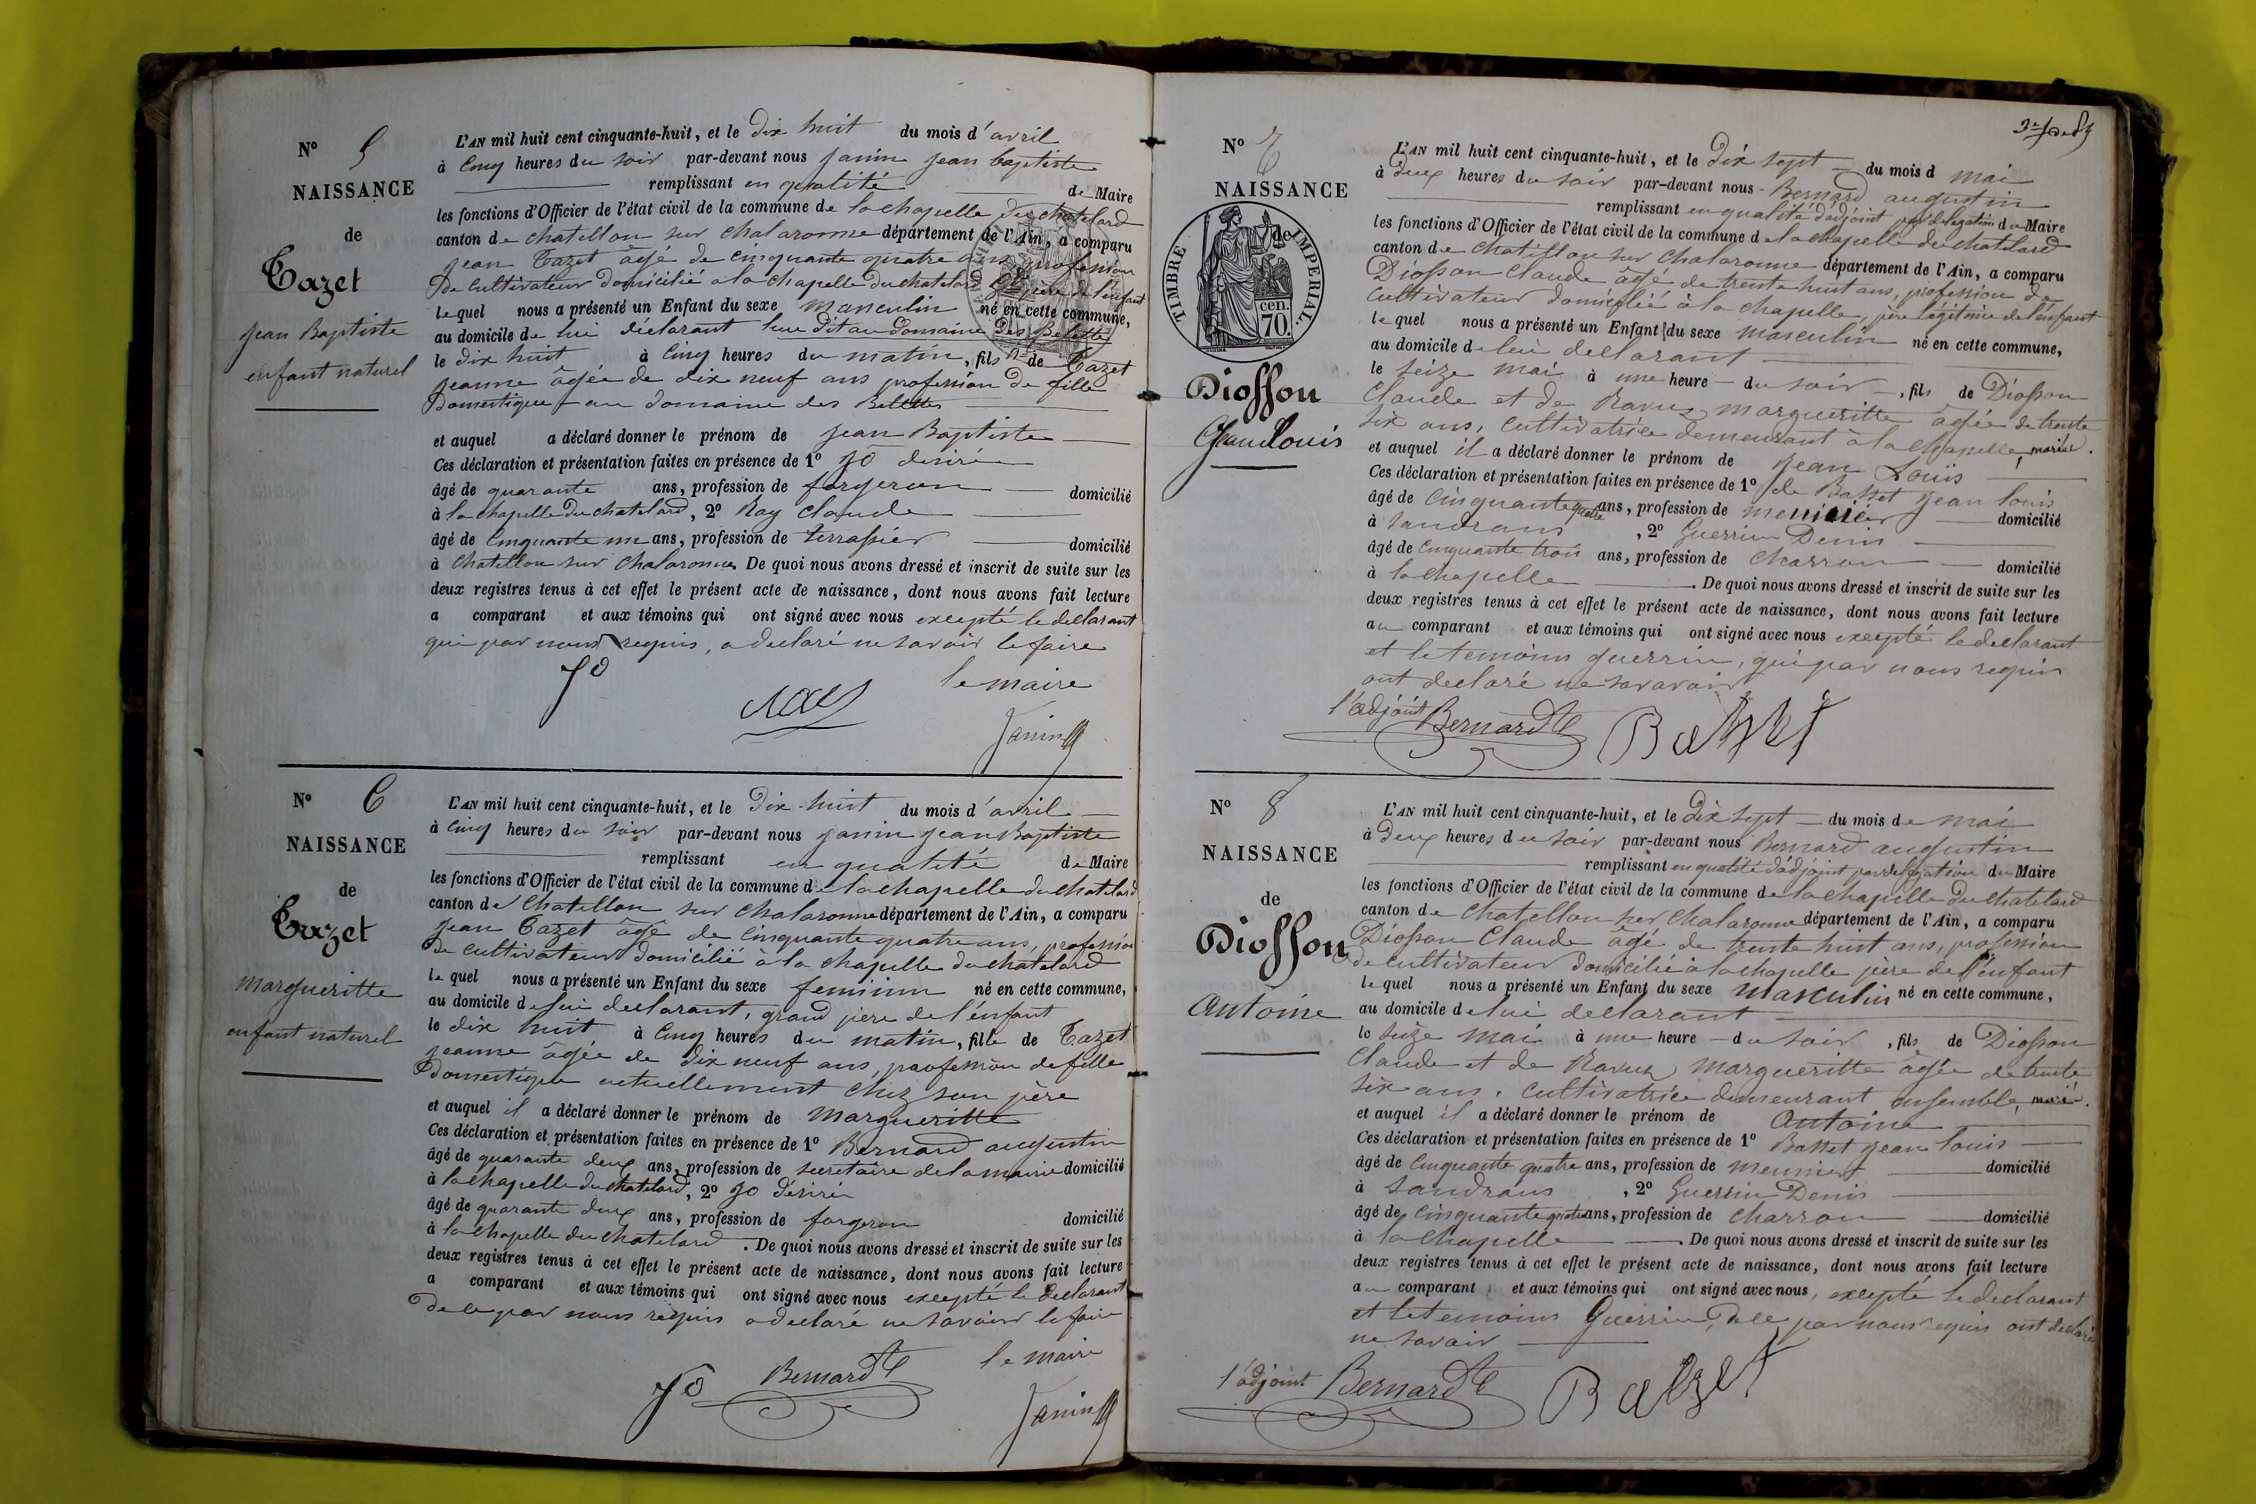 N° 5
NAISSANCE
de
Tazet
Jean Baptiste
enfant naturel
L'AN mil huit cent cinquante-huit, et le dix huit du mois d'avril
à cinq heures du soir par-devant nous Janin Jean baptiste
remplissant en qualité de Maire
les fonctions d'Officier de l'état civil de la commune de la chapelle du chatelard
canton de chatillon sur chalaronne département de l'Ain, a comparu
Jean Tazet âgé de cinquante quatre ans profession
de cultivateur domicilié a la chapelle du chatelard grand père de l'enfant
lequel nous a présenté un Enfant du sexe masculin né en cette commune,
au domicile de lui déclarant lieu dit au domaine des Belettes
le dix huit à cinq heures du matin, fils de Tazet
Jeanne âgée de dix neuf ans profession de fille
Domestique au domaine des Belettes
et auquel a déclaré donner le prénom de Jean Baptiste
Ces déclaration et présentation faites en présence de 1° Jo désiré
âgé de quarante ans, profession de forgeron domicilié
à la chapelle du chatelard, 2° Ray Claude
âgé de cinquante un ans, profession de terrassier domicilié
à Chatillon sur Chalaronne De quoi nous avons dressé et inscrit de suite sur les
deux registres tenus à cet effet le présent acte de naissance, dont nous avons fait lecture
a comparant et aux témoins qui ont signé avec nous excepté le declarant
qui par nous requis, a declaré ne savoir le faire
Jo le maire
Janin
N° 6
NAISSANCE
de
Tazet
margueritte
enfant naturel
L'AN mil huit cent cinquante-huit, et le dix-huit du mois d'avril
à cinq heures du soir par-devant nous Janin Jean Baptiste
remplissant en qualité de Maire
les fonctions d'Officier de l'état civil de la commune de la chapelle du chatelard
canton de Chatillon sur chalaronne département de l'Ain, a comparu
Jean Tazet âgé de cinquante quatre ans, profession
de cultivateur domicilié à la chapelle du chatelard
lequel nous a présenté un Enfant du sexe feminin né en cette commune,
au domicile de lui declarant, grand père de l'enfant
le dix huit à cinq heures du matin, fille de Tazet
Jeanne âgée de dix neuf ans, profession de fille
domestique actuellement chez son père
et auquel il a déclaré donner le prénom de margueritte
Ces déclaration et présentation faites en présence de 1° Bernard augustin
âgé de quarante deux ans, profession de secretaire de la mairie domicilié
à la chapelle du chatelard, 2° Jo Désiré
âgé de quarante deux ans, profession de forgeron domicilié
à la chapelle du chatelard. De quoi nous avons dressé et inscrit de suite sur les
deux registres tenus à cet effet le présent acte de naissance, dont nous avons fait lecture
a comparant et aux témoins qui ont signé avec nous excepté le declarant
de ce par nous requis a declaré ne savoir le faire
Jo Bernard le maire
Janin
N° 7
NAISSANCE
de
TIMBRE IMPERIAL.
cen.
70.
Diosson
Jean Louis
L'AN mil huit cent cinquante-huit, et le dix sept du mois d mai
à deux heures du soir par-devant nous Bernard augustin
remplissant en qualité d'adjoint par delegation du Maire
les fonctions d'Officier de l'état civil de la commune de la chapelle du chatelard
canton de chatillon sur chalaronne département de l'Ain, a comparu
Diosson Claude âgé de trente huit ans, profession de
cultivateur domicilié à la chapelle, père légitime de l'enfant
lequel nous a présenté un Enfant du sexe masculin né en cette commune,
au domicile de lui declarant
le seize mai à une heure du soir, fils de Diosson
Claude et de Ravuz margueritte âgée de trente
six ans, cultivatrice demeurant à la chapelle, mariés.
et auquel il a déclaré donner le prénom de Jean Louis
Ces déclaration et présentation faites en présence de 1° de Basset Jean louis
âgé de cinquante quatre ans, profession de meunier domicilié
à sandrans, 2° Guerrin Denis
âgé de cinquante trois ans, profession de charron domicilié
à la chapelle. De quoi nous avons dressé et inscrit de suite sur les
deux registres tenus à cet effet le présent acte de naissance, dont nous avons fait lecture
au comparant et aux témoins qui ont signé avec nous excepté le declarant
et le temoins guerrin, qui par nous requis
ont declaré ne savavoir
l'adjoint Bernard
N° 8
NAISSANCE
de
Diosson
antoine
L'AN mil huit cent cinquante-huit, et le dix sept du mois de mai
à deux heures du soir par-devant nous Bernard augustin
remplissant en qualité d'adjoint par delegation du Maire
les fonctions d'Officier de l'état civil de la commune de la chapelle du chatelard
canton de Chatillon sur Chalaronne département de l'Ain, a comparu
Diosson Claude âgé de trente huit ans, profession
de cultivateur domicilié à la chapelle père de l'enfant
lequel nous a présenté un Enfant du sexe masculin né en cette commune,
au domicile de lui declarant
le seize mai à une heure du soir, fils de Diosson
Claude et de Ravuz margueritte âgée de trente
six ans, cultivatrice demeurant ensemble, mariés.
et auquel il a déclaré donner le prénom de antoine
Ces déclaration et présentation faites en présence de 1° Basset Jean louis
âgé de cinquante quatre ans, profession de meunier domicilié
à sandrans, 2° Guerrin Denis
âgé de cinquante quatre ans, profession de charron domicilié
à la chapelle. De quoi nous avons dressé et inscrit de suite sur les
deux registres tenus à cet effet le présent acte de naissance, dont nous avons fait lecture
au comparant et aux témoins qui ont signé avec nous, excepté le declarant
et le temoins Guerrin, de ce par nous requis ont declaré
ne savoir
l'adjoint Bernard